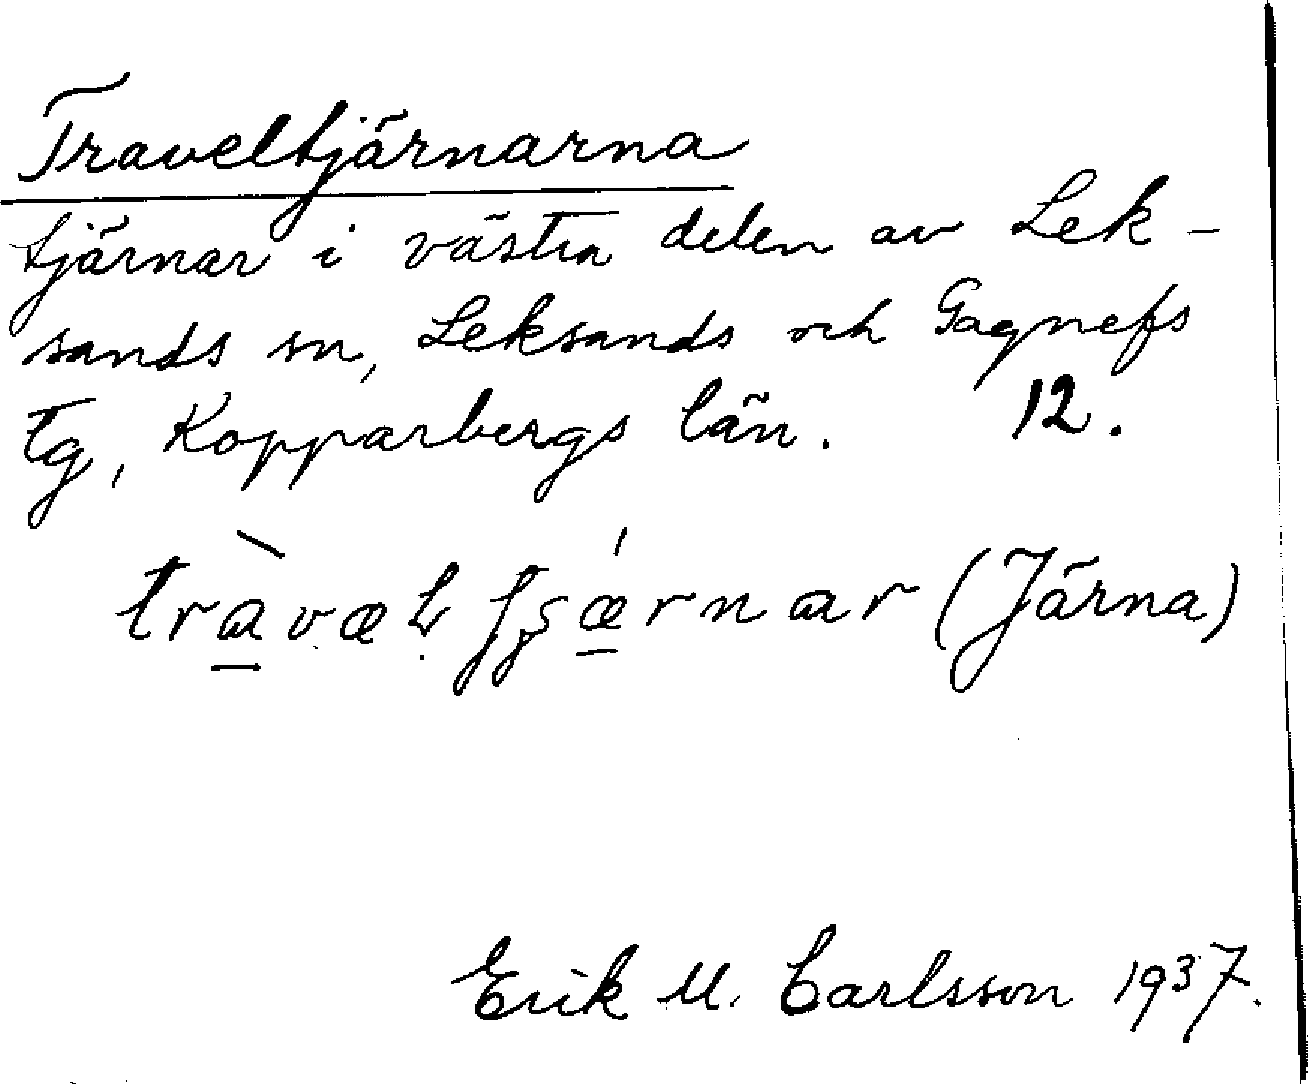 Traveltjärnarna
tjärnar i västra delen av Lek-
sands sn, Leksands och Gagnefs
tg, Kopparbergs län. 12.
(Järna)
Erik M. Carlsson 1937.